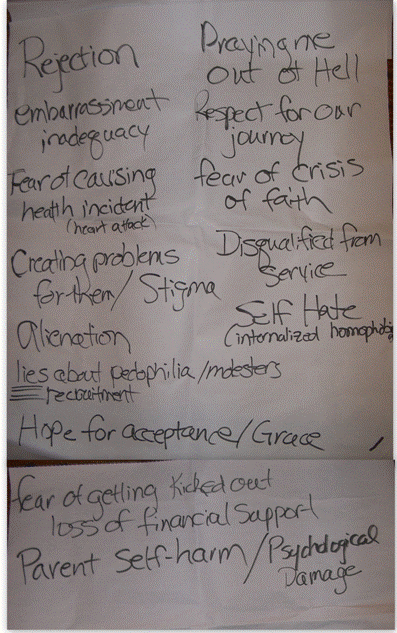 Rejection
embarrassment
inadequacy
Fear of causing
health incident
(heart attack)
Creating problems
for them/Stigma
alienation
lies about pedophilia/molesters
recruitment
Praying me
out of Hell
Respect for our
journey
fear of crisis
of faith
Disqualified from
service
Self Hate
(internalized homophobia
Hope for acceptance/Grace
fear of getting kicked out
loss of financial support
Parent self-harm/Psychological
Damage